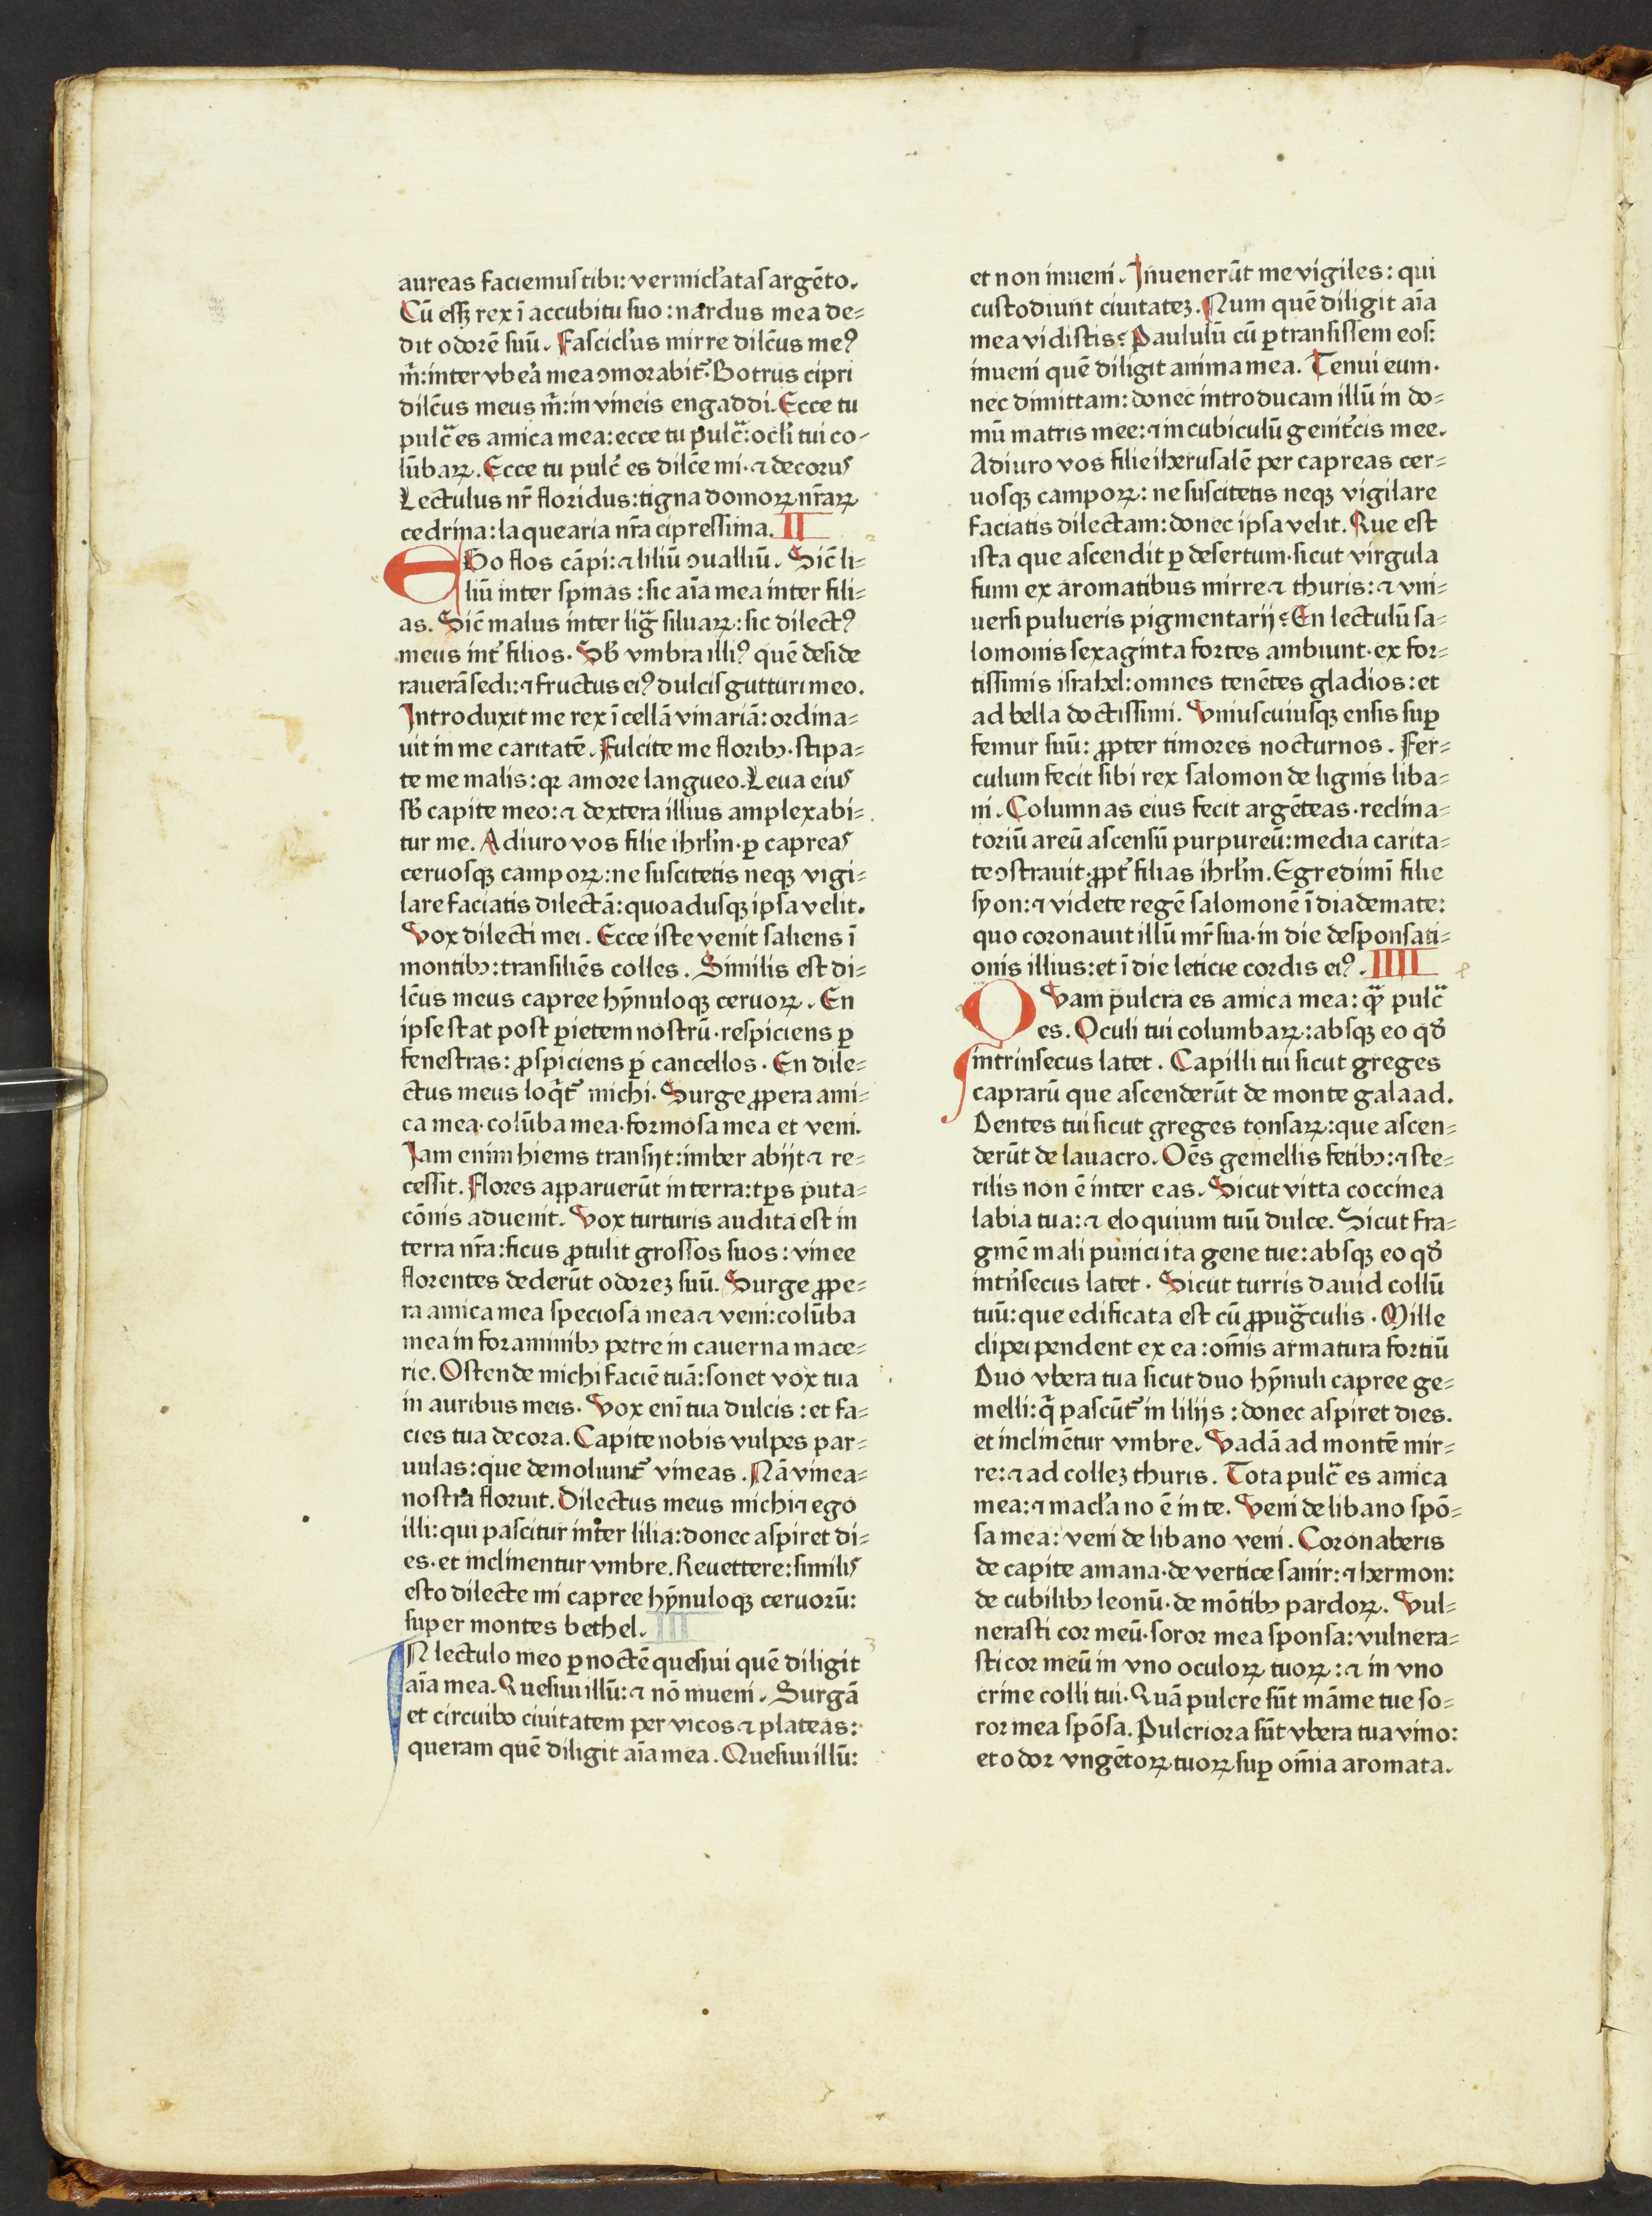 aureas faciemus tibi: vermicl'atas argēto.
Cū esſʒ rex ī accubitu suo: nardus mea de=
dit odorē suū. Fascicl'us mirre dilc̄us me⁹
m̄: inter vbeā mea ↄmorabit᷑. Botrus cipri
dilc̄us meus m̄: in vineis engaddi. Ecce tu
pulc̄ es amica mea: ecce tu pulc̄: ocl'i tui co-
lūbaꝝ. Ecce tu pulc̄ es dilc̄e mi. ⁊ decorus
Lectulus nr̄ floridus: tigna domoꝝ nr̄aꝝ
cedrina: laquearia nr̄a cipressina. II
EGo flos cāpi: ⁊ liliū ↄualliū. Sic̄ li=
liū inter spinas: sic aīa mea inter fili=
as. Sic̄ malus inter lig̃ siluaꝝ: sic dilect⁹
meus int᷑ filios. Sb̄ vmbra illi⁹ quē deside
raverā sedi: ⁊ fructus ei⁹ dulcis gutturi meo.
Introduxit me rex ī cellā vinariā: ordina=
uit in me caritatē. Fulcite me floribꝰ. stipa=
te me malis: qꝛ amore langueo. Leua eius
sb̄ capite meo: ⁊ dextera illius amplexabi=
tur me. Adiuro vos filie ihrl'm. ꝑ capreas
ceruosqꝫ campoꝝ: ne suscitetis neqꝫ vigi=
lare faciatis dilectā: quoadusqꝫ ipsa velit.
Vox dilecti mei. Ecce iste venit saliens ī
montibꝰ: transiliēs colles. Similis est di=
lc̄us meus capree hȳnuloqꝫ ceruoꝝ. En
ipse stat post ꝑietem nostrū. respiciens ꝑ
fenestras: ꝓspiciens ꝑ cancellos. En dile=
ctus meus loq̄t᷑ michi. Surge ꝓpera ami=
ca mea. colūba mea. formosa mea et veni.
Jam enim hiems transijt: imber abijt ⁊ re=
cessit. Flores apparuerūt in terra: tp̄s puta=
cōnis aduenit. Vox turturis audita est in
terra nr̄a: ficus ꝓtulit grossos suos: vinee
florentes dederūt odoreʒ suū. Surge ꝓpe=
ra amica mea speciosa mea ⁊ veni: colūba
mea in foraminibꝰ petre in cauerna mace=
rie. Ostende michi faciē tuā: sonet vox tua
in auribus meis. Vox enī tua dulcis: et fa=
cies tua decora. Capite nobis vulpes par=
uulas: que demoliunt᷑ vineas. Nā vinea=
nostra floruit. Dilectus meus michi ⁊ ego
illi: qui pascitur inter lilia: donec aspiret di=
es. et inclinentur vmbre. Reuertere: similis
esto dilecte mi capree hȳnuloqꝫ ceruorū:
super montes bethel. III
IN lectulo meo ꝑ noctē quesiui quē diligit
aīa mea. Quesiui illū: ⁊ nō inueni. Surgā
et circuibo ciuitatem per vicos ⁊ plateas:
queram quē diligit aīa mea. Quesiui illū:
et non inueni. Inuenerūt me vigiles: qui
custodiunt ciuitateʒ. Num quē diligit aīa
mea vidistis? Paululū cū ꝑtransissem eos:
inueni quē diligit anima mea. Tenui eum.
nec dimittam: donec introducam illū in do=
mū matris mee: ⁊ in cubiculū genit᷑cis mee.
Adiuro vos filie iherusalē per capreas cer=
uosqꝫ campoꝝ: ne suscitetis neqꝫ vigilare
faciatis dilectam: donec ipsa velit. Que est
ista que ascendit ꝑ desertum. sicut virgula
fumi ex aromatibus mirre ⁊ thuris: ⁊ vni=
uersi pulueris pigmentarij? En lectulū sa=
lomonis sexaginta fortes ambiunt. ex for=
tissimis israhel: omnes tenētes gladios: et
ad bella doctissimi. Vniuscuiusqꝫ ensis suꝑ
femur suū: ꝓpter timores nocturnos. Fer=
culum fecit sibi rex salomon de lignis liba=
ni. Columnas eius fecit argēteas. reclina=
toriū areū ascensū purpureū: media carita=
te ↄstrauit. ꝓpt᷑ filias ihrl'm. Egredimī filie
syon: ⁊ videte regē salomonē ī diademate:
quo coronauit illū mr̄ sua. in die desponsati=
onis illius: et ī die leticie cordis ei⁹. IIII
QVam pulcra es amica mea: q̄ꝫ pulc̄
es. Oculi tui columbaꝝ: absqꝫ eo qd̄
intrinsecus latet. Capilli tui sicut greges
caprarū que ascenderūt de monte galaad.
Dentes tui sicut greges tonsaꝝ: que ascen=
derūt de lauacro. Oēs gemellis fetibꝰ: ⁊ ste=
rilis non ē inter eas. Sicut vitta coccinea
labia tua: ⁊ eloquium tuū dulce. Sicut fra=
gmē mali punici ita gene tue: absqꝫ eo qd̄
intn̄secus latet. Sicut turris dauid collū
tuū: que edificata est cū ꝓpug̃culis. Mille
clipei pendent ex ea: om̄is armatura fortiū
Duo vbera tua sicut duo hȳnuli capree ge=
melli: q̄ pascūt᷑ in lilijs: donec aspiret dies.
et inclinētur vmbre. Vadā ad montē mir=
re: ⁊ ad colleʒ thuris. Tota pulc̄ es amica
mea: ⁊ macl'a no ē in te. Veni de libano spō=
sa mea: veni de libano veni. Coronaberis
de capite amana. de vertice sanir: ⁊ hermon:
de cubilibꝰ leonū. de mōtibꝰ pardoꝝ. Vul=
nerasti cor meū. soror mea sponsa: vulnera=
sti cor meū in vno oculoꝝ tuoꝝ: ⁊ in vno
crine colli tui. Quā pulcre sūt māme tue so=
ror mea spōsa. Pulcriora sūt vbera tua vino:
et odor vngētoꝝ tuoꝝ suꝑ om̄ia aromata.